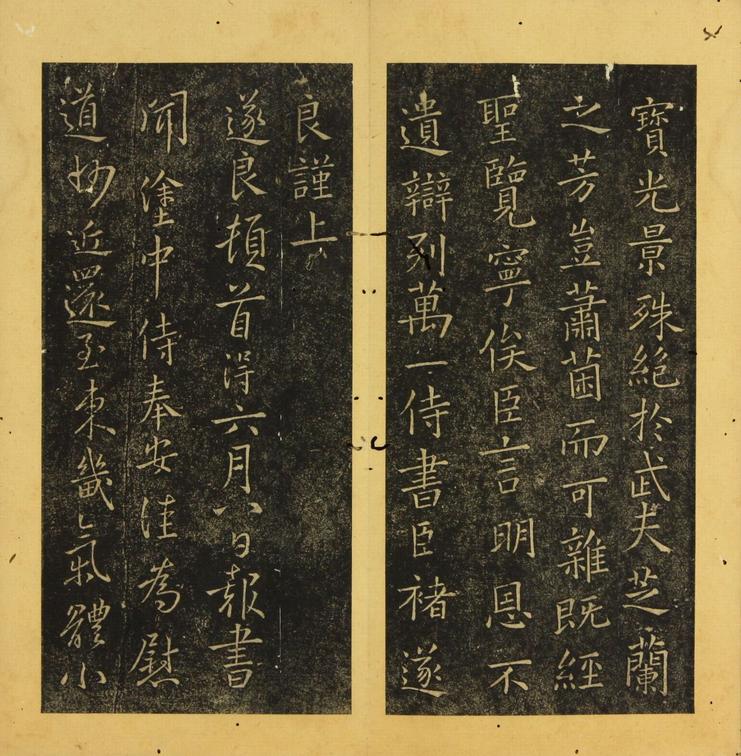 寶光景殊絕於武夫芝蘭
之芳豈蕭茵而可雜既經
聖覽寧俟臣言明恩不
遺辯列萬一侍書臣褚遂
良謹上
遂良頓首得六月八日報書
聞塗中侍奉安佳為慰
道妙近還至東畿氣體小